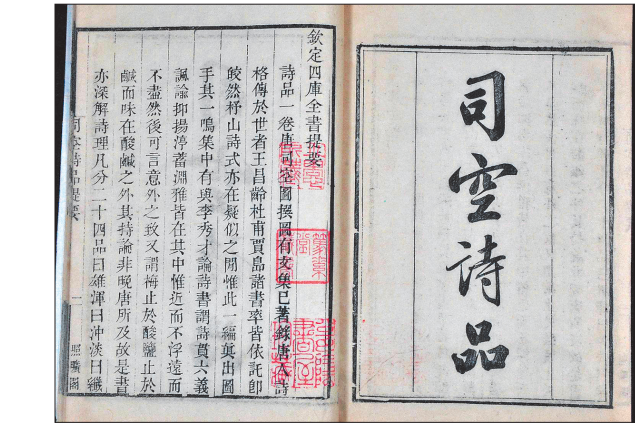 司空詩品
欽定四庫全書提要
詩品一卷唐司空圖撰圖有文集已著錄唐人詩
格傳於世者王昌齡杜甫賈島諸書率皆依託即
皎然杼山詩式亦在疑似之間惟此一編真出圖
手其一鳴集中有與李秀才論詩書謂詩貫六義
諷諭抑揚渟蓄淵雅皆在其中惟近而不浮遠而
不盡然後可言意外之致又謂梅止於酸鹽止於
鹹而味在酸鹹之外其持論非晚唐所及故是書
亦深解詩理凡分二十四品曰雄渾曰沖淡曰纖
司空詩品提要 一 照曠閣